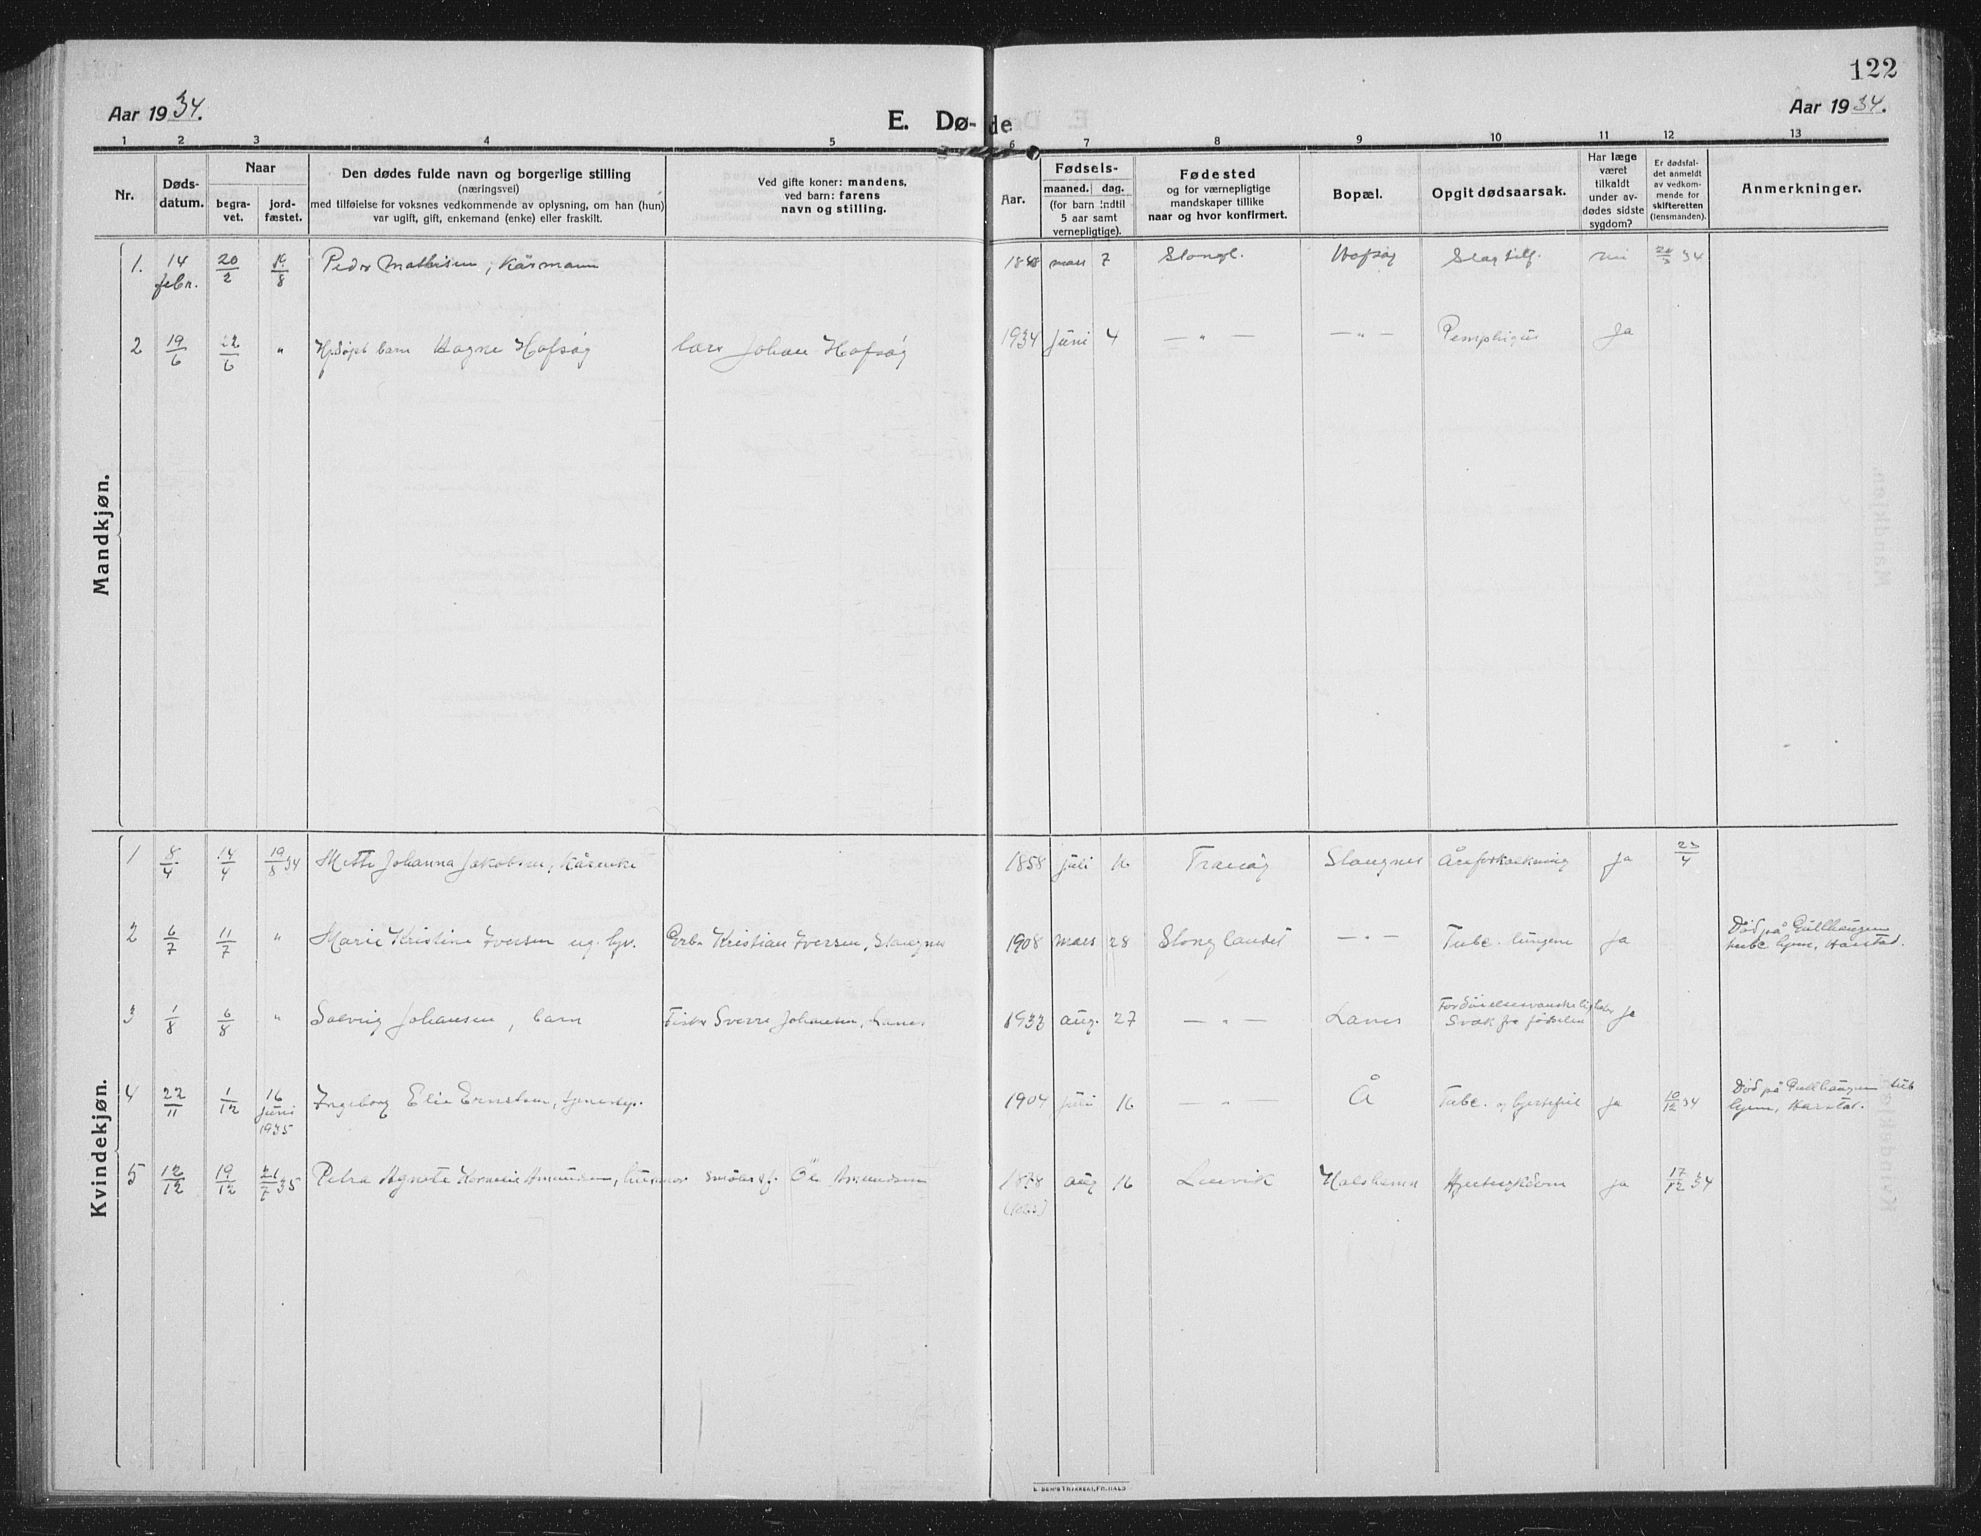 122
Aar 1934.
E. Dø- de
Aar 1934.
1 2 3 4 5 6 7 8 9 10 11 12 13
Nr.
Døds-
datum.
Naar
begra-
vet.
jord-
fæstet.
Den dødes fulde navn og borgerlige stilling
(næringsvei)
med tilføielse for voksnes vedkommende av oplysning, om han (hun)
var ugift, gift, enkemand (enke) eller fraskilt.
Ved gifte koner: mandens,
ved barn: farens
navn og stilling.
Aar.
Fødsels-
maaned. dag.
(for barn indtil
5 aar samt
vernepligtige).
Fødested
og for værnepligtige
mandskaper tillike
naar og hvor konfirmert.
Bopæl.
Opgit dødsaarsak.
Har læge
været
tilkaldt
under av-
dødes sidste
sygdom?
Er dødsfal-
det anmeldt
av vedkom-
mende for
skifteretten
(lensmanden).
Anmerkninger.
Mandkjøn.
1. 14 febr. 20/2 19/8 Peder Mathisen, Kårmann 1848 mars 7 Stongl. Hofsøy Slagtilf. nei 34
2 19/6 22/6 " Hjdøpt barn Hagne Hofsøy Lars Johan Hofsøy 1934 Juni 4 — " — — " — Pemphigus Ja
Kvindekjøn.
1 8/4 14/4 19/8 34 Mette Johanna Jakobsen, Kårenke 1858 juli 16 Tranøy Stangnes Åreforkalkning Ja 23/4
2 6/7 11/7 " Marie Kristine Iversen ug. hjv. Kristian Iversen, Stangnes 1908 mars 28 Stonglandet — " — Tubc. lungene Ja Død på Gullhaugen
tubc hjem, Harstad.
3 1/8 6/8 " Solveig Johansen, barn Fisker Sverre Johansen, Lanes 1932 aug. 27 — " — Lanes Fordøielsesvanskeligheter
Svak fra fødselen Ja
4 22/11 1/12 16 Juni 1935 Ingeborg Elie Ernstsen, tjenestep. 1904 juli 16 — " — Å Tubc. og hjertefeil Ja 10/12 34 Død på Gullhaugen tub
hjem, Harstad.
5 12/12 19/12 21/7 35 Petra Agnete Kornelie Amundsen, husmor Ole Amundsen 1878 aug 16 Lenvik Halshemn Hjertesykdom ja 17/12 34